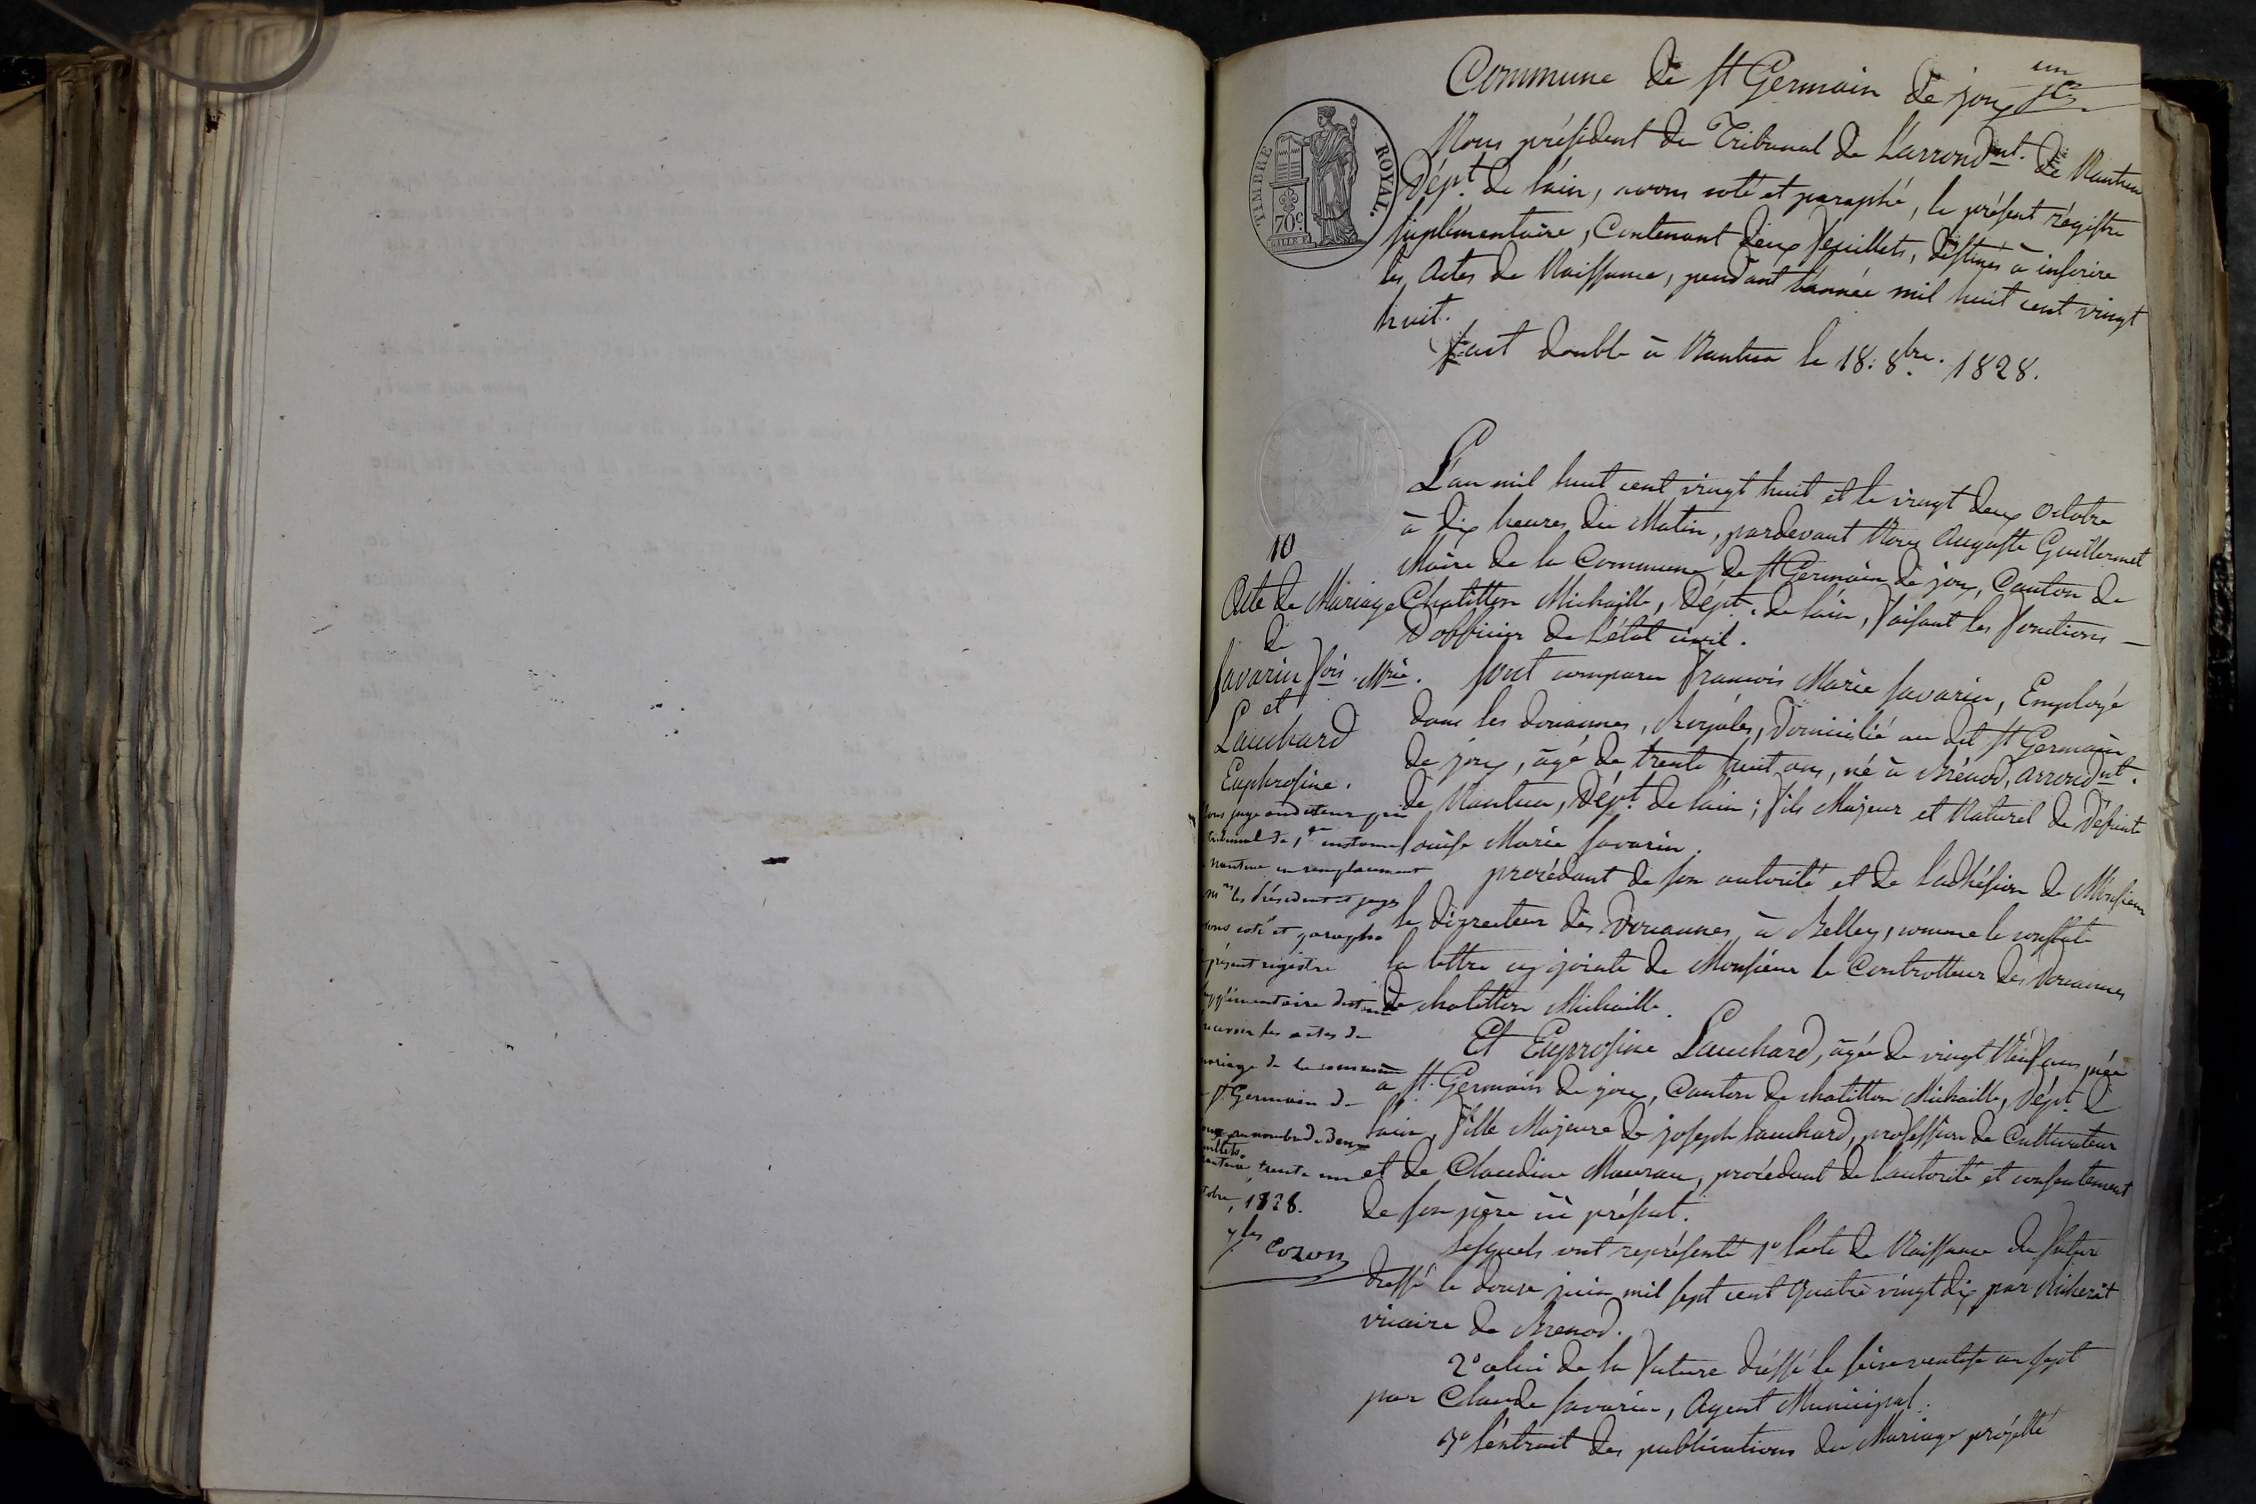 Commune de St Germain de joux
un
Nous président du Tribunal de l'arrondnt. de Nantua
Dépt. de l'ain, avons coté et paraphé, le présent régistre
suplémentaire, Contenant deux feuillets, déstinés à inscrire
les Actes de Naissance, pendant l'année mil huit cent vingt
huit.
fait double à Nantua le 18. 8bre. 1828.
TIMBRE ROYAL.
70c.
L'an mil huit cent vingt huit et le vingt deux octobre
à dix heures du Matin, pardevant Nous Auguste Guillermet
Maire de la Commune de St Germain de joux, Canton de
Chatillon Michaille, Dépt. de l'ain, faisant les fonctions
D'officier de l'état civil.
10
Acte de Mariage
de
Savarin fois. Mrie.
et
Lauchard
Euphrosine.
sont comparu francois Marie Savarin, Employé
dans les douannes, Royales, Domicilié au dit St Germain
de joux, âgé de trente huit ans, né à Brénod, arrondnt.
de Nantua, Dépt. de l'ain; fils Majeur et Naturel de Défunte
Louise Marie Savarin.
procédant de son autorité et de l'adhésion de Monsieur
le directeur des Douannes à Belley, comme le constate
la lettre cy jointe de Monsieur le Controlleur des Douannes
de chatillon Michaille.
Et Euprosine Lauchard, âgée de vingt Neuf ans, née
à St. Germain de joux, Canton de chatillon Michaille, Dépt. de
l'ain, fille Majeure de joseph Lauchard, profession de Cultivateur
et de Claudine Maurau, procédant de l'autorité et consentement
de son père ici présent.
Lesquels ont représenté 1o l'acte de Naissance du futur
dressé le douze juin mil sept cent quatre vingt dix par
vicaire de Brenod.
2o celui de la future dréssé le seize ventose an sept
par Claude Savarin, Agent Municipal.
3o l'éxtrait des publications du Mariage projétté
juge auditeur
tribunal de 1re instance
nantua en remplacement
mrs les président et juges
coté et paraphé
présent registre
supplémentaire destiné
recevoir les actes de
mariage de la commune
St Germain de
au nombre de deux
trente un
1828.
Cozon